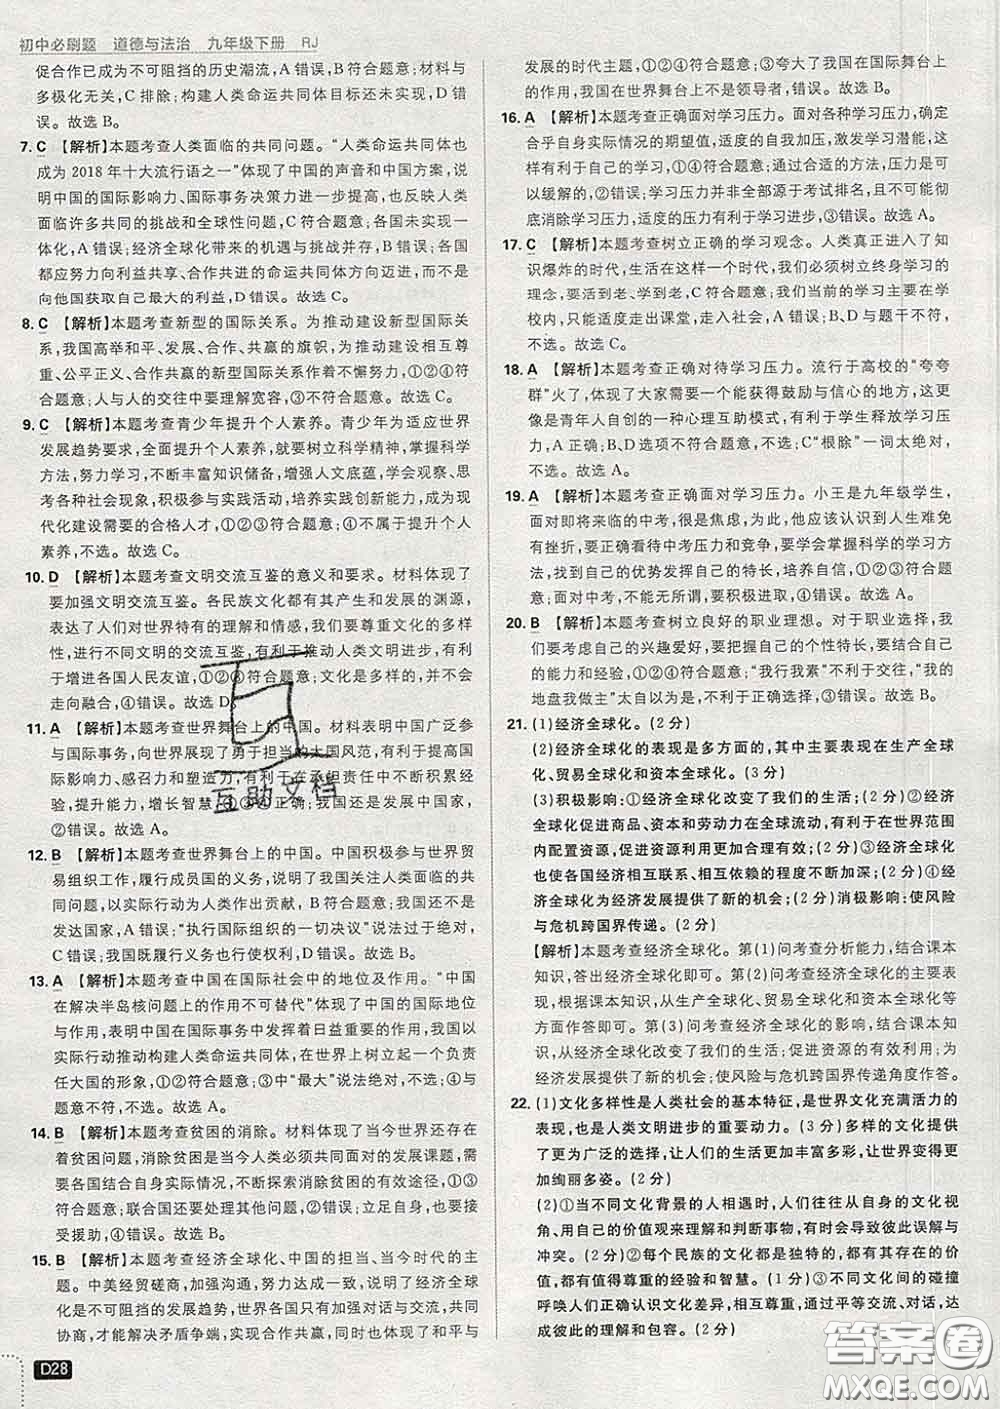 初中必刷题 道德与法治 九年级下册 RJ
促合作已成为不可阻挡的历史潮流,A错误,B符合题意;材料与
多极化无关,C排除;构建人类命运共同体目标还未实现,D错
误。故选B。
7. C 【解析】本题考查人类面临的共同问题。“人类命运共同体也
成为2018年十大流行语之一”体现了中国的声音和中国方案,
说明中国的国际影响、国际事务决策力进一步提高,也反映人类
面临许多共同的挑战和全球性问题,C符合题意;各国未实现一
体化,A错误;经济全球化带来的机遇与挑战并存,B错误;各国
都应努力向利益共享、合作共进的命运共同体方向迈进,而不是
向他国获取自己最大的利益,D错误。故选C。
8. C 【解析】本题考查新型的国际关系。为推动建设新型国际关
系,我国高举和平、发展、合作、共赢的旗帜,为推动建设相互尊
重、公平正义、合作共赢的新型国际关系作着不懈努力,①②④符
合题意;人与人的交往中要理解宽容,③不符合题意。故选C。
9. C 【解析】本题考查青少年提升个人素养。青少年为适应世界
发展趋势要求,全面提升个人素养,就要树立科学精神,掌握科学
方法,努力学习,不断丰富知识储备,增强人文底蕴,学会观察、思
考各种社会现象,积极参与实践活动,培养实践创新能力,成为现
代化建设需要的合格人才,①②③符合题意;④不属于提升个人
素养,不选。故选C。
10. D 【解析】本题考查文明交流互鉴的意义和要求。材料体现了
要加强文明交流互鉴。各民族文化都有其产生和发展的渊源,
表达了人们对世界特有的理解和情感,我们要尊重文化的多样
性,进行不同文明的交流互鉴,有利于推动人类文明进步,有利
于增进各国人民友谊,①②③符合题意;文化是多样的,并不会
走向融合,④错误。故选D。
11. A 【解析】本题考查世界舞台上的中国。材料表明中国广泛参
与国际事务,向世界展现了勇于担当的大国风范,有利于提升国
际影响力、感召力和塑造力,有利于在承担责任中不断积累经
验,提升能力,增长智慧,①③④正确;我国是发展中国家,
②错误。故选A。
12. B 【解析】本题考查世界舞台上的中国。中国积极参与世界贸
易组织工作,履行成员国的义务,说明了我国关注人类共同命
运,以实际行动为人类作出贡献,B符合题意;我国目前还不是
发达国家,A错误;“执行国际组织的一切决议”说法过于绝对,
C错误;我国既履行义务也行使权利,D错误。故选B。
13. A 【解析】本题考查中国在国际社会中的地位及作用。“中国
在解决半岛核问题上的作用不可替代”体现了中国的国际地位
与作用,表明中国在国际事务中发挥着日益重要的作用,我国以
实际行动推动构建人类命运共同体,在世界上树立起一个负责
任大国的形象,①②符合题意;③中“最大”说法绝对,不选;④与
题意不符,不选。故选A。
14. B 【解析】本题考查贫困的消除。材料体现了当今世界还存在
着贫困问题,消除贫困是人类必须共同面对的发展课题,需要各
国根据自身实际情况,不断探索消除贫困的有效途径,①③符合
题意;联合国还要处理其他事情,②错误;贫困国家也不能一味
接受援助,④错误。故选B。
15. B 【解析】本题考查经济全球化、中国的担当、当今时代的主
题。中美经贸磋商,加强沟通,努力达成一致,说明了经济全球
化是不可阻挡的发展趋势,世界各国只有加强对话与交流,共同
协商,才能解决矛盾争端,实现合作共赢,同时也体现了和平与
D28
发展的时代主题,①②④符合题意;③夸大了我国在国际舞台上
的作用,我国在世界舞台上不是领导者,错误。故选B。
16. A 【解析】本题考查正确面对学习压力。面对各种学习压力,确定
合乎自身实际情况的期望值,适度的自我加压,激发学习潜能,这
样有利于自己的学习,①④符合题意;通过合适的方法,压力是可
以缓解的,②错误;学习压力并非全部源于考试排名,且不可能彻
底消除学习压力,适度的压力有利于学习进步,③错误。故选A。
17. C 【解析】本题考查树立正确的学习观念。人类真正进入了知
识爆炸的时代,生活在这一个时代,我们必须树立终身学习的
理念,要活到老、学到老,C符合题意;我们当前的发展任务在学
校内,只可适度走出课堂,走入社会,A错误;B、D与题干不符,
不选。故选C。
18. A 【解析】本题考查正确对待学习压力。流行于高校的“夸夸
群”火了,体现了大家需要一个能获得鼓励与信心的地方,这更
像是青年人自创的一种心理互助模式,有利于学生释放学习压
力,A正确;B、D选项不符合题意,不选;C“根除”一词太绝对,
不选。故选A。
19. A 【解析】本题考查正确面对学习压力。小王是九年级学生,
面对即将来临的中考,很是焦虑,为此,他应该认识到人生难免
有压力,正确看待中考压力和竞争,要学会掌握科学的学习方
法,找到自己的优势发挥自己的特长,培养自信,①②③符合题
意;面对中考,不能无所谓,要积极进取,④错误。故选A。
20. B 【解析】本题考查树立良好的职业理想。对于职业选择,我
们要考虑自己的兴趣爱好,要发挥自己的个性特长,要结合自己
的能力和经验,①②符合题意;“我行我素”不利于交往,“我的
地盘我做主”太自以为是,不利于发展,③④错误。故选B。
21. (1)经济全球化。(2分)
(2)经济全球化的表现是多方面的,其中主要表现在生产全球
化、贸易全球化和资本全球化。(3分)
(3)积极影响:①经济全球化改变了我们的生活;(2分)②经济
全球化促进商品、资本和劳动力在全球流动,有利于在世界范围
内配置资源,促进资源更加合理有效;(2分)③经济全球化
也使各国经济相互联系、相互依赖的程度不断加深;(2分)④经
济全球化为经济发展提供了新的机会。(2分)消极影响:使风险
与危机跨国界传递。(2分)
【解析】本题考查经济全球化。第(1)问考查分析能力,结合课本
知识,答出经济全球化即可。第(2)问考查经济全球化的主要表
现,根据课本知识,从生产全球化、贸易全球化和资本全球化三方
面作答即可。第(3)问考查经济全球化的影响,结合课本知
识,从经济全球化改变了我们的生活;促进资源的有效利用;为经
济发展提供了新的机会;使风险与危机跨国界传递角度作答。
22. (1)文化多样性是人类社会的基本特征,是世界文化充满活力的
表现,也是人类文明进步的重要动力。(3分)多样的文化提供
了更为广泛的选择,让人们的生活更加丰富多彩,让世界变得更
加绚丽多姿。(2分)
(2)①当不同文化背景的人相遇时,人们往往从自身的文化视
角、用自己的价值观来理解和判断事物,有时会导致彼此误解与
冲突。(2分)②每个民族的文化都是独特的,都有其存在的价
值,都蕴含着丰富的经验和智慧。(1分)③不同文化间的碰撞
呼唤人们正确认识文化差异,通过平等交流、对话,在
达成彼此的理解和包容。(2分)
互助文档
答案圈
MXQE.COM